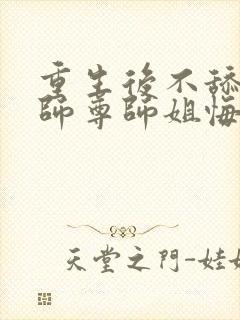 重生後不舔
師尊師姐悔
天堂之門-娃